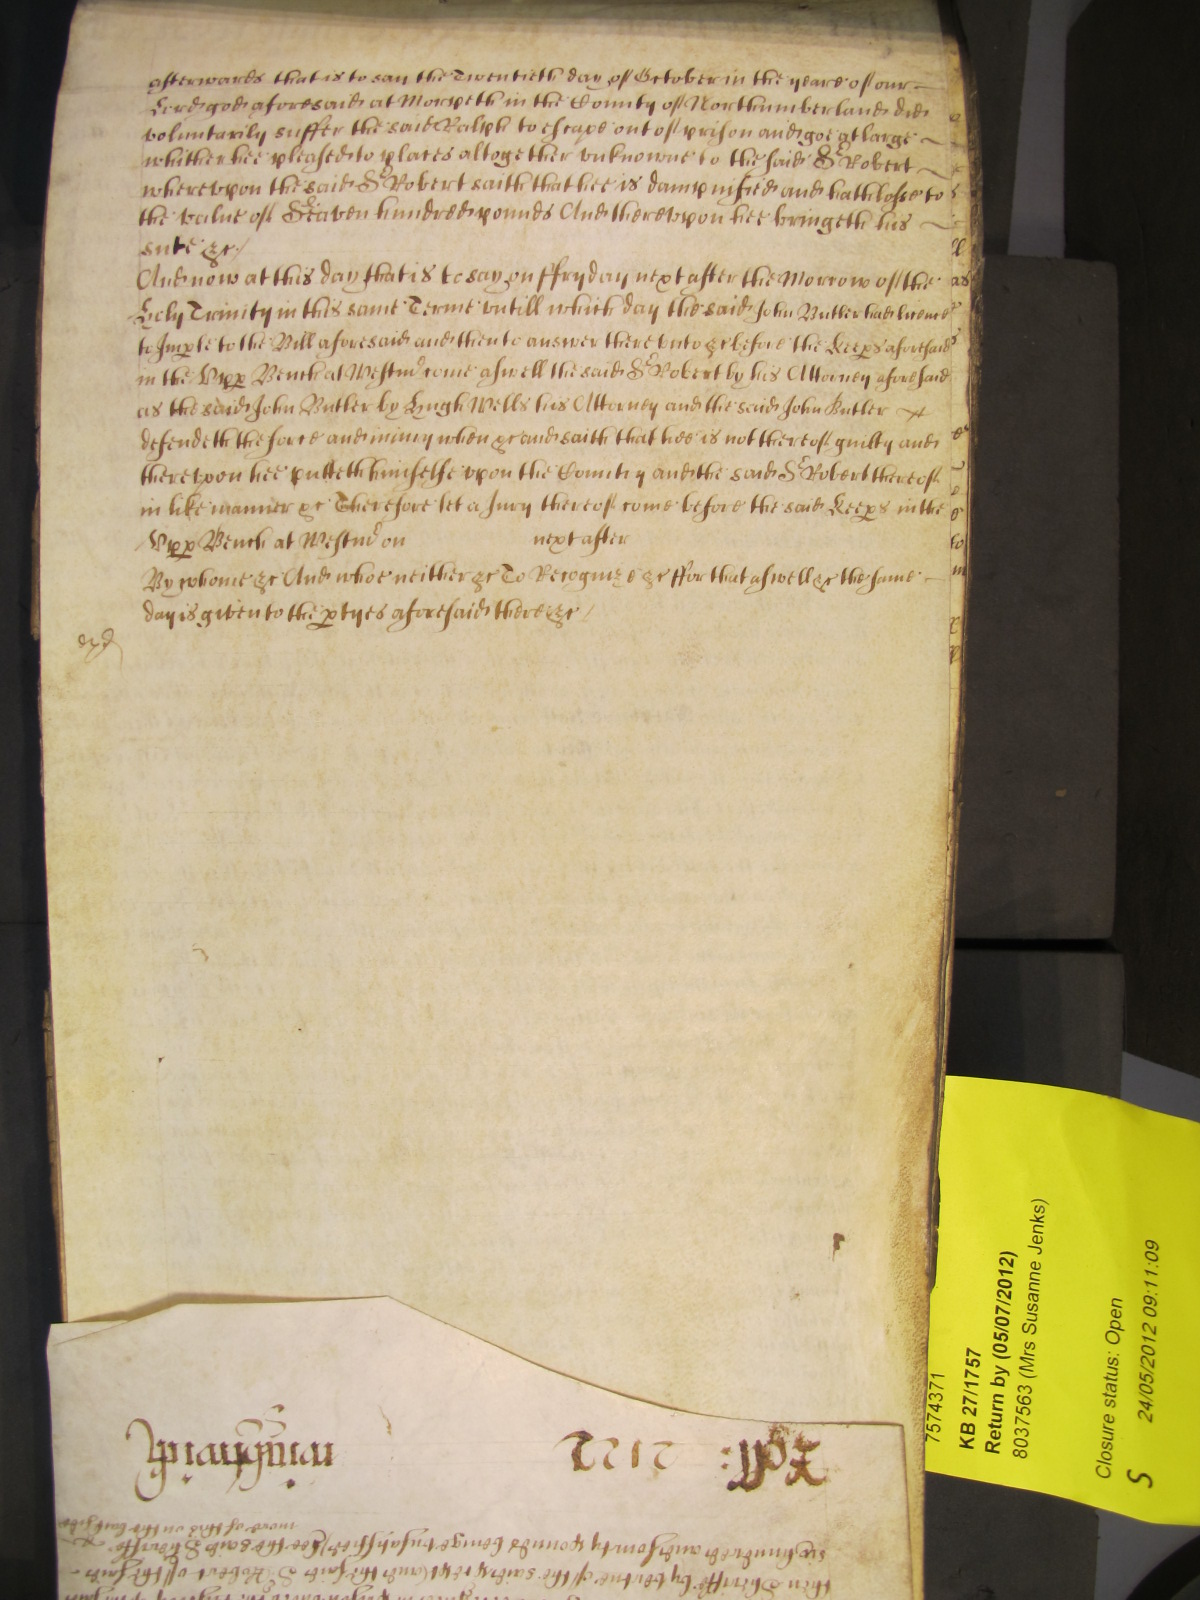 afterwards that is to say the Twentieth day of October in the yeare of our
Lord god aforesaid at Morpeth in the County of Northumberland did
voluntarily suffer the said Ralph to escape out of prison and goe at large
whither hee pleased to places altogether unknowne to the said Sr Robert
whereupon the said Sr Robert saith that hee is dampnified and hath losse to
the value of Seaven hundred pounds And thereupon hee bringeth his
sute &c
And now at this day that is to say on ffryday next after the Morrow of the
Holy Trinity in this same Terme untill which day the said John Butler had licence
to Imple to the Bill aforesaid and then to answer thereunto &c before the Keeps aforesaid
in the Upp Bench at Westmr come aswell the said Sr Robert by his Attorney aforesaid
as the said John Butler by Hugh Wells his Attorney and the said John Butler
defendeth the force and iniury when &c and saith that hee is not thereof guilty and
thereupon hee putteth himselfe upon the Country and the said Sr Robert thereof
in like manner &c Therefore let a Jury thereof come before the said Keeps in the
Upp Bench at Westmr on next after
By whome &c And whoe neither &c To Recognize &c ffor that aswell &c the same
day is given to the ptyes aforesaid there &c
7574371
KB 27/1757
Return by (05/07/2012)
8037563 (Mrs Susanne Jenks)
Closure status: Open
S 24/05/2012 09:11:09
2122
more of this on the backside
six hundred and seventy pounds being unsatisfied hee the said Sheriffe
then Sheriffe by vertue of the said writt and the said Sr Robert of the said